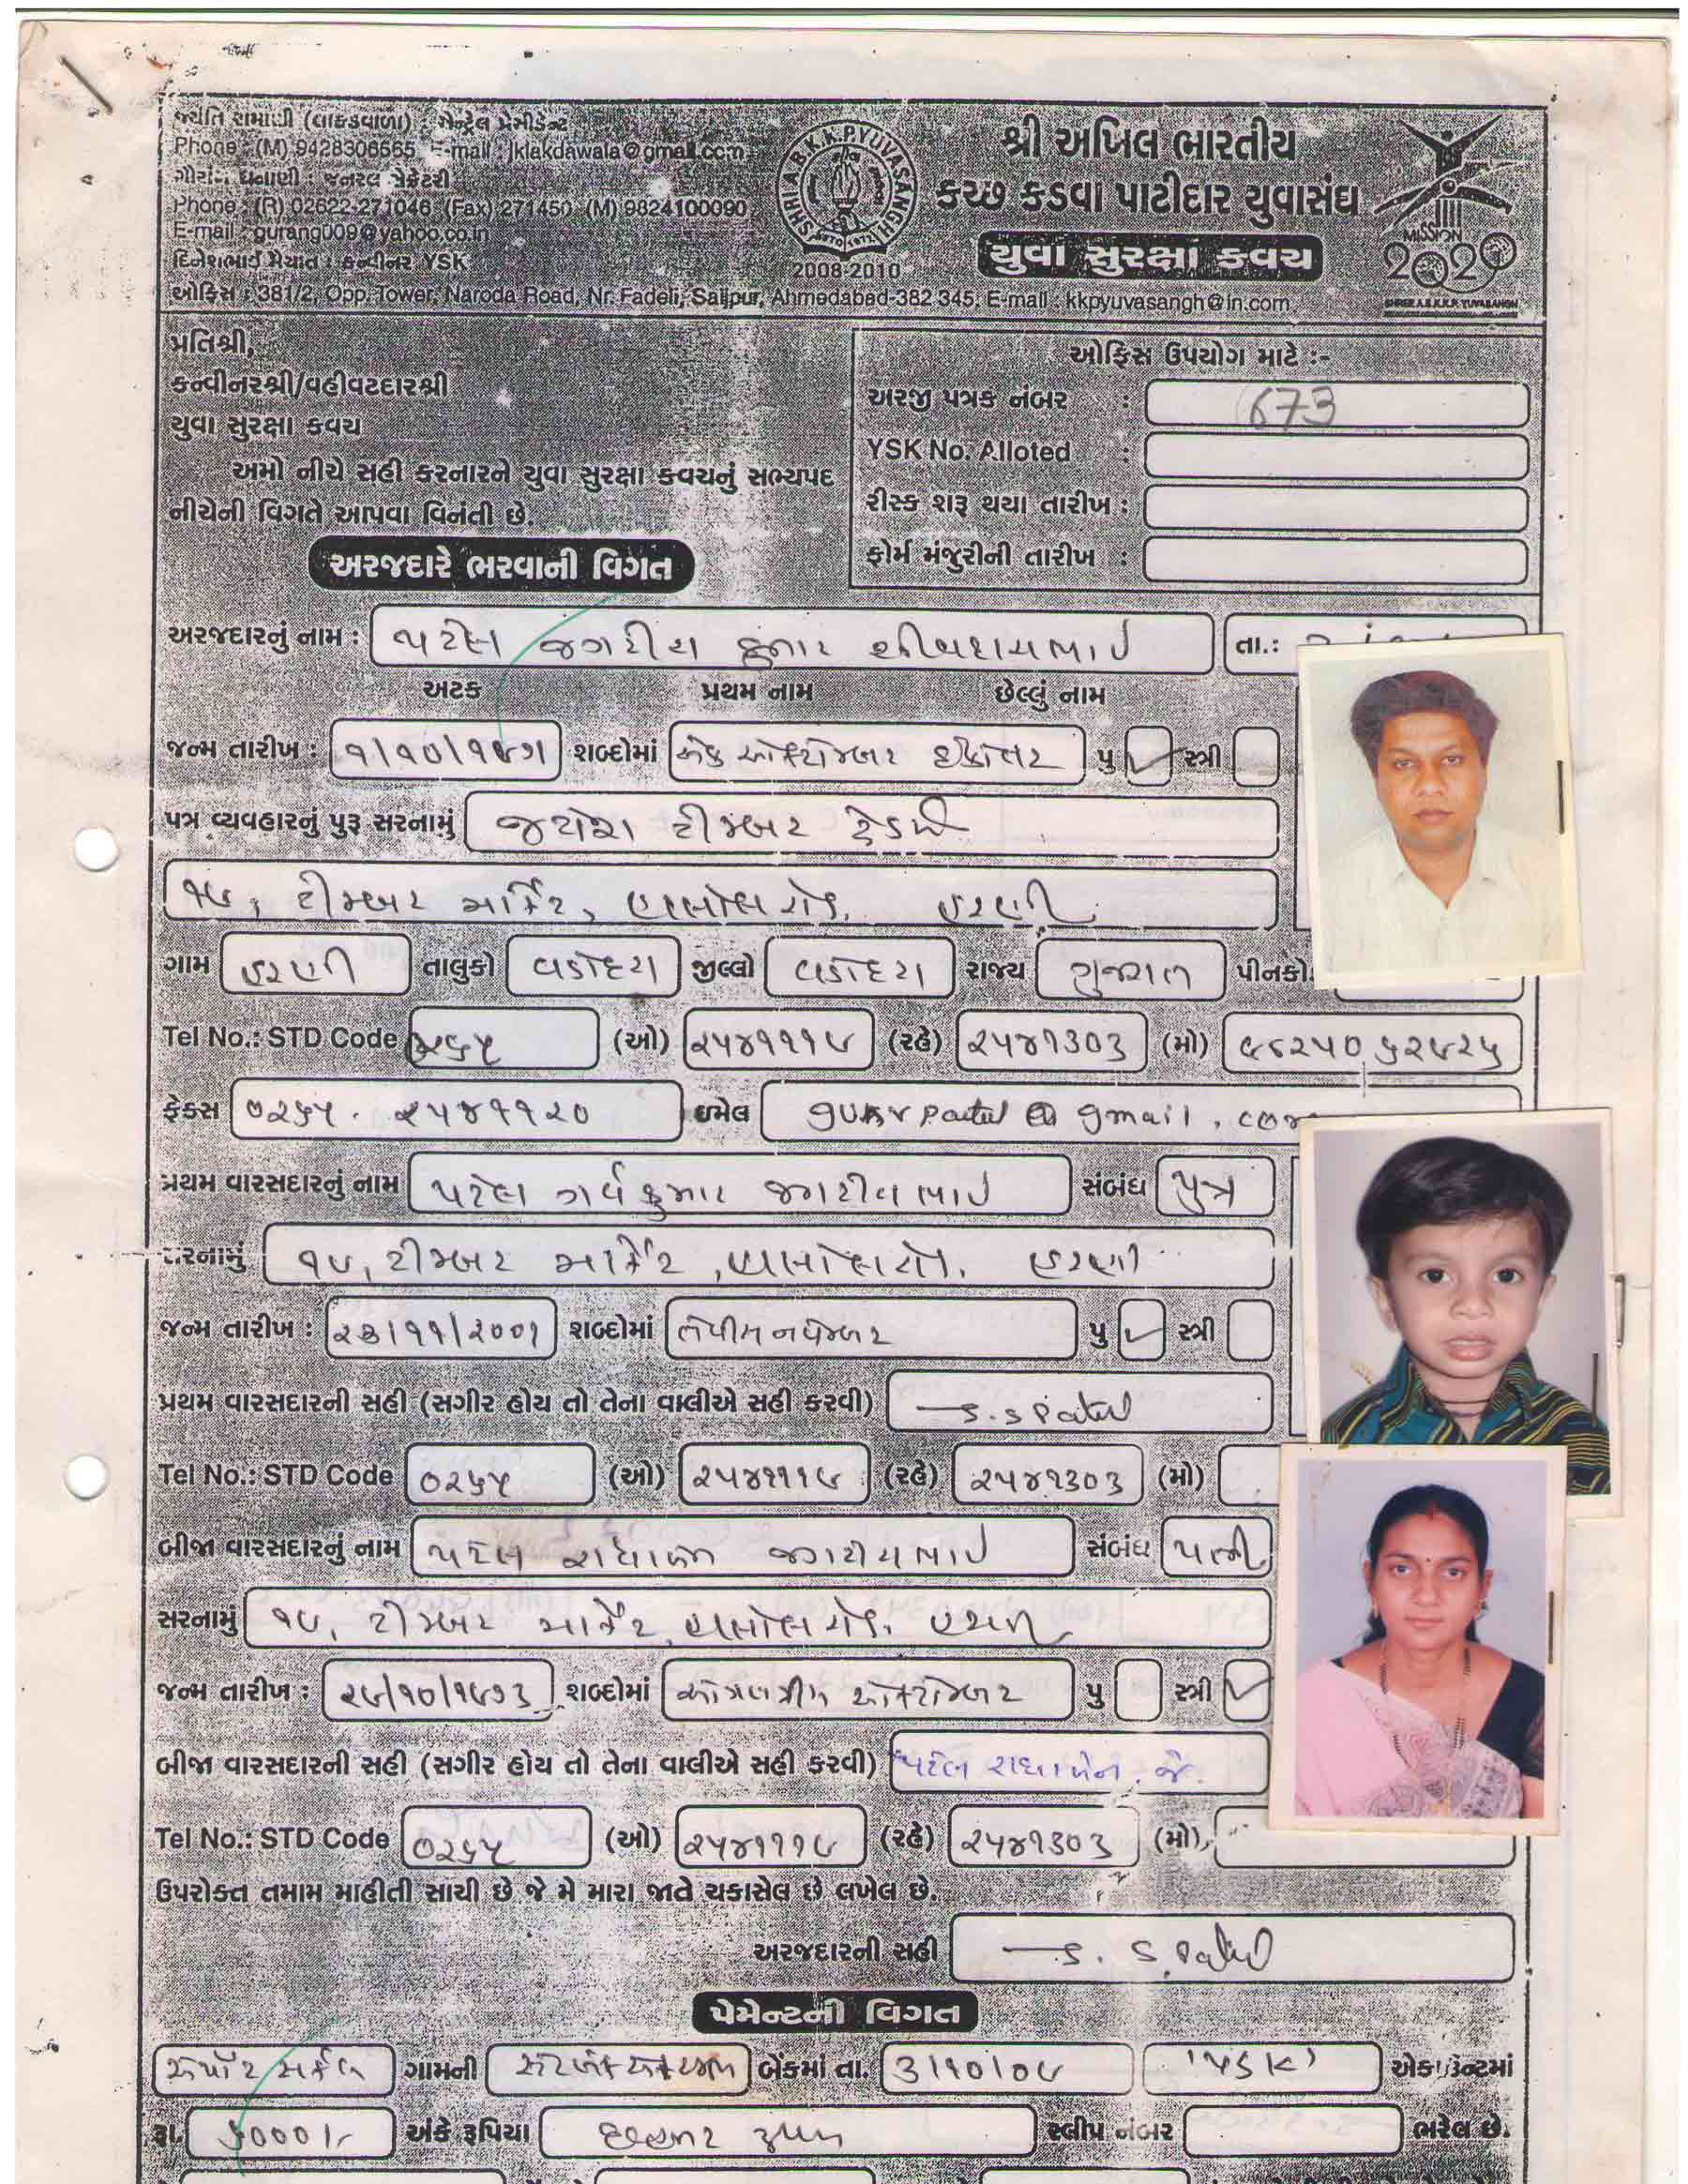 જ્યંતિ રામાણી (લાકડાવાળા) : સેન્ટ્રેલ પ્રેસીડેન્ટ
Phone : (M) 9428306565 E-mail : jklakdawala@gmail.com
ગૌરાંગ ધનાણી : જનરલ સેક્રેટરી
Phone : (R) 02622-271046 (Fax) 271450 (M) 9824100090
E-mail : gurang009@yahoo.co.in
દિનેશભાઈ : કન્વીનર YSK
ઓફિસ : 381/2, Opp. Tower, Naroda Road, Nr. Fadeli, Saijpur, Ahmedabad-382 345. E-mail : kkpyuvasangh@in.com
SHRI A.B.K.K.P. YUVASANGH
2008-2010
શ્રી અખિલ ભારતીય
કચ્છ કડવા પાટીદાર યુવાસંઘ
યુવા સુરક્ષા કવચ
MISSION
2020
SHREE A.B.K.K.P. YUVASANGH
પ્રતિશ્રી,
કન્વીનરશ્રી/વહીવટદારશ્રી
યુવા સુરક્ષા કવચ
અમો નીચે સહી કરનારને યુવા સુરક્ષા કવચનું સભ્યપદ
નીચેની વિગતે આપવા વિનંતી છે.
ઓફિસ ઉપયોગ માટે :-
અરજી પત્રક નંબર : 673
YSK No. Alloted :
રીસ્ક શરૂ થયા તારીખ :
ફોર્મ મંજુરીની તારીખ :
અરજદારે ભરવાની વિગત
અરજદારનું નામ : પટેલ જગદીશ કુમાર શીવદાસભાઈ તા.:
અટક પ્રથમ નામ છેલ્લું નામ
જન્મ તારીખ : ૧/૧૦/૧૯૭૧ શબ્દોમાં એક ઓક્ટોમ્બર ઈકોતર પુ સ્ત્રી
પત્ર વ્યવહારનું પુરૂ સરનામું જયેશ ટીમ્બર ટ્રેડર્સ
૧૯, ટીમ્બર માર્કેટ, હાલોલ રોડ, હરણી
ગામ હરણી તાલુકો વડોદરા જીલ્લો વડોદરા રાજ્ય ગુજરાત પીનકો
Tel No.: STD Code ૦૨૬૫ (ઓ) ૨૫૪૧૧૧૯ (રહે) ૨૫૪૧૩૦૩ (મો)
ફેક્સ ૦૨૬૫ . ૨૫૪૧૧૨૦ ઇમેલ gmail . com
પ્રથમ વારસદારનું નામ પટેલ ગર્વ કુમાર જગદીશભાઈ સંબંધ પુત્ર
સરનામું ૧૯, ટીમ્બર માર્કેટ, હાલોલ રોડ, હરણી
જન્મ તારીખ : ૨૩/૧૧/૨૦૦૧ શબ્દોમાં તેવીસ નવેમ્બર પુ સ્ત્રી
પ્રથમ વારસદારની સહી (સગીર હોય તો તેના વાલીએ સહી કરવી) J. S Patel
Tel No.: STD Code ૦૨૬૫ (ઓ) ૨૫૪૧૧૧૯ (રહે) ૨૫૪૧૩૦૩ (મો)
બીજા વારસદારનું નામ પટેલ રાધાબેન જગદીશભાઈ સંબંધ પત્ની
સરનામું ૧૯, ટીમ્બર માર્કેટ, હાલોલ રોડ, હરણી
જન્મ તારીખ : ૨૯/૧૦/૧૯૭૩ શબ્દોમાં ઓગણત્રીસ ઓક્ટોમ્બર પુ સ્ત્રી
બીજા વારસદારની સહી (સગીર હોય તો તેના વાલીએ સહી કરવી) પટેલ રાધાબેન. જે.
Tel No.: STD Code ૦૨૬૫ (ઓ) ૨૫૪૧૧૧૯ (રહે) ૨૫૪૧૩૦૩ (મો)
ઉપરોક્ત તમામ માહીતી સાચી છે જે મે મારા જાતે ચકાસેલ છે લખેલ છે.
અરજદારની સહી J. S. Patel
પેમેન્ટની વિગત
ગામની બેંકમાં તા. ૩/૧૦/૦૯ 'YSK' એકાઉન્ટમાં
રૂા. ૬૦૦૦/- અંકે રૂપિયા છ હજાર સ્લીપ નંબર ભરેલ છે.